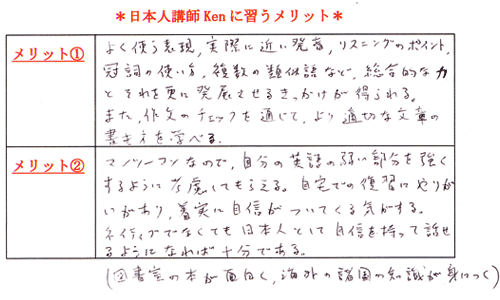 ＊日本人講師Kenに習うメリット＊
メリット①
よく使う表現,実際に近い発音,リスニングのポイント,
冠詞の使い方,複数の類似語など,総合的な力
とそれを更に発展させるきっかけが得られる。
また,作文のチェックを通じて,より適切な文章の
書き方を学べる.
メリット②
マンツーマンなので,自分の英語の弱い部分を強く
するように考慮してもらえる。自宅での復習にやりが
いがあり,着実に自信がついてくる気がする。
ネイティブでなくても日本人として自信を持って話せ
るようになれば十分である。
(図書室の本が面白く,海外の諸国の知識が身につく)